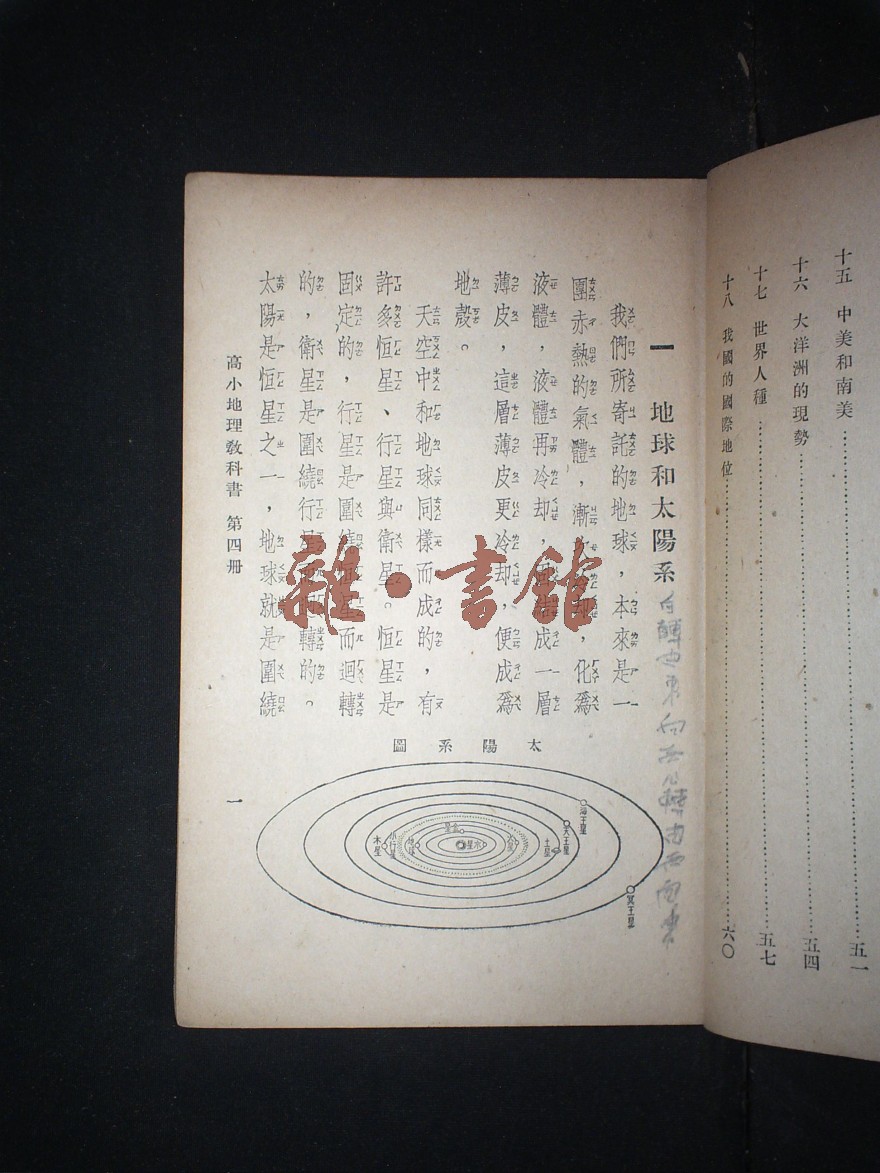 十五 中美和南美…………五一
十六 大洋洲的現勢…………五四
十七 世界人種…………五七
十八 我國的國際地位…………六〇
一 地球和太陽系
自轉由東向西 轉由西向東
我們所寄託的地球，本來是一
團赤熱的氣體，漸 ，化爲
液體，液體再冷却， 成一層
薄皮，這層薄皮更冷却，便成爲
地殼。
天空中和地球同樣而成的，有
許多恒星、行星與衛星。恒星是
固定的，行星是圍繞恒星而迴轉
的，衛星是圍繞行星 迴轉的。
太陽是恒星之一，地球就是圍繞
太陽系圖
海王星
天王星
冥王星
土星
火星
水星
金星
地球
小行星
木星
高小地理教科書 第四册
一
雜·書館